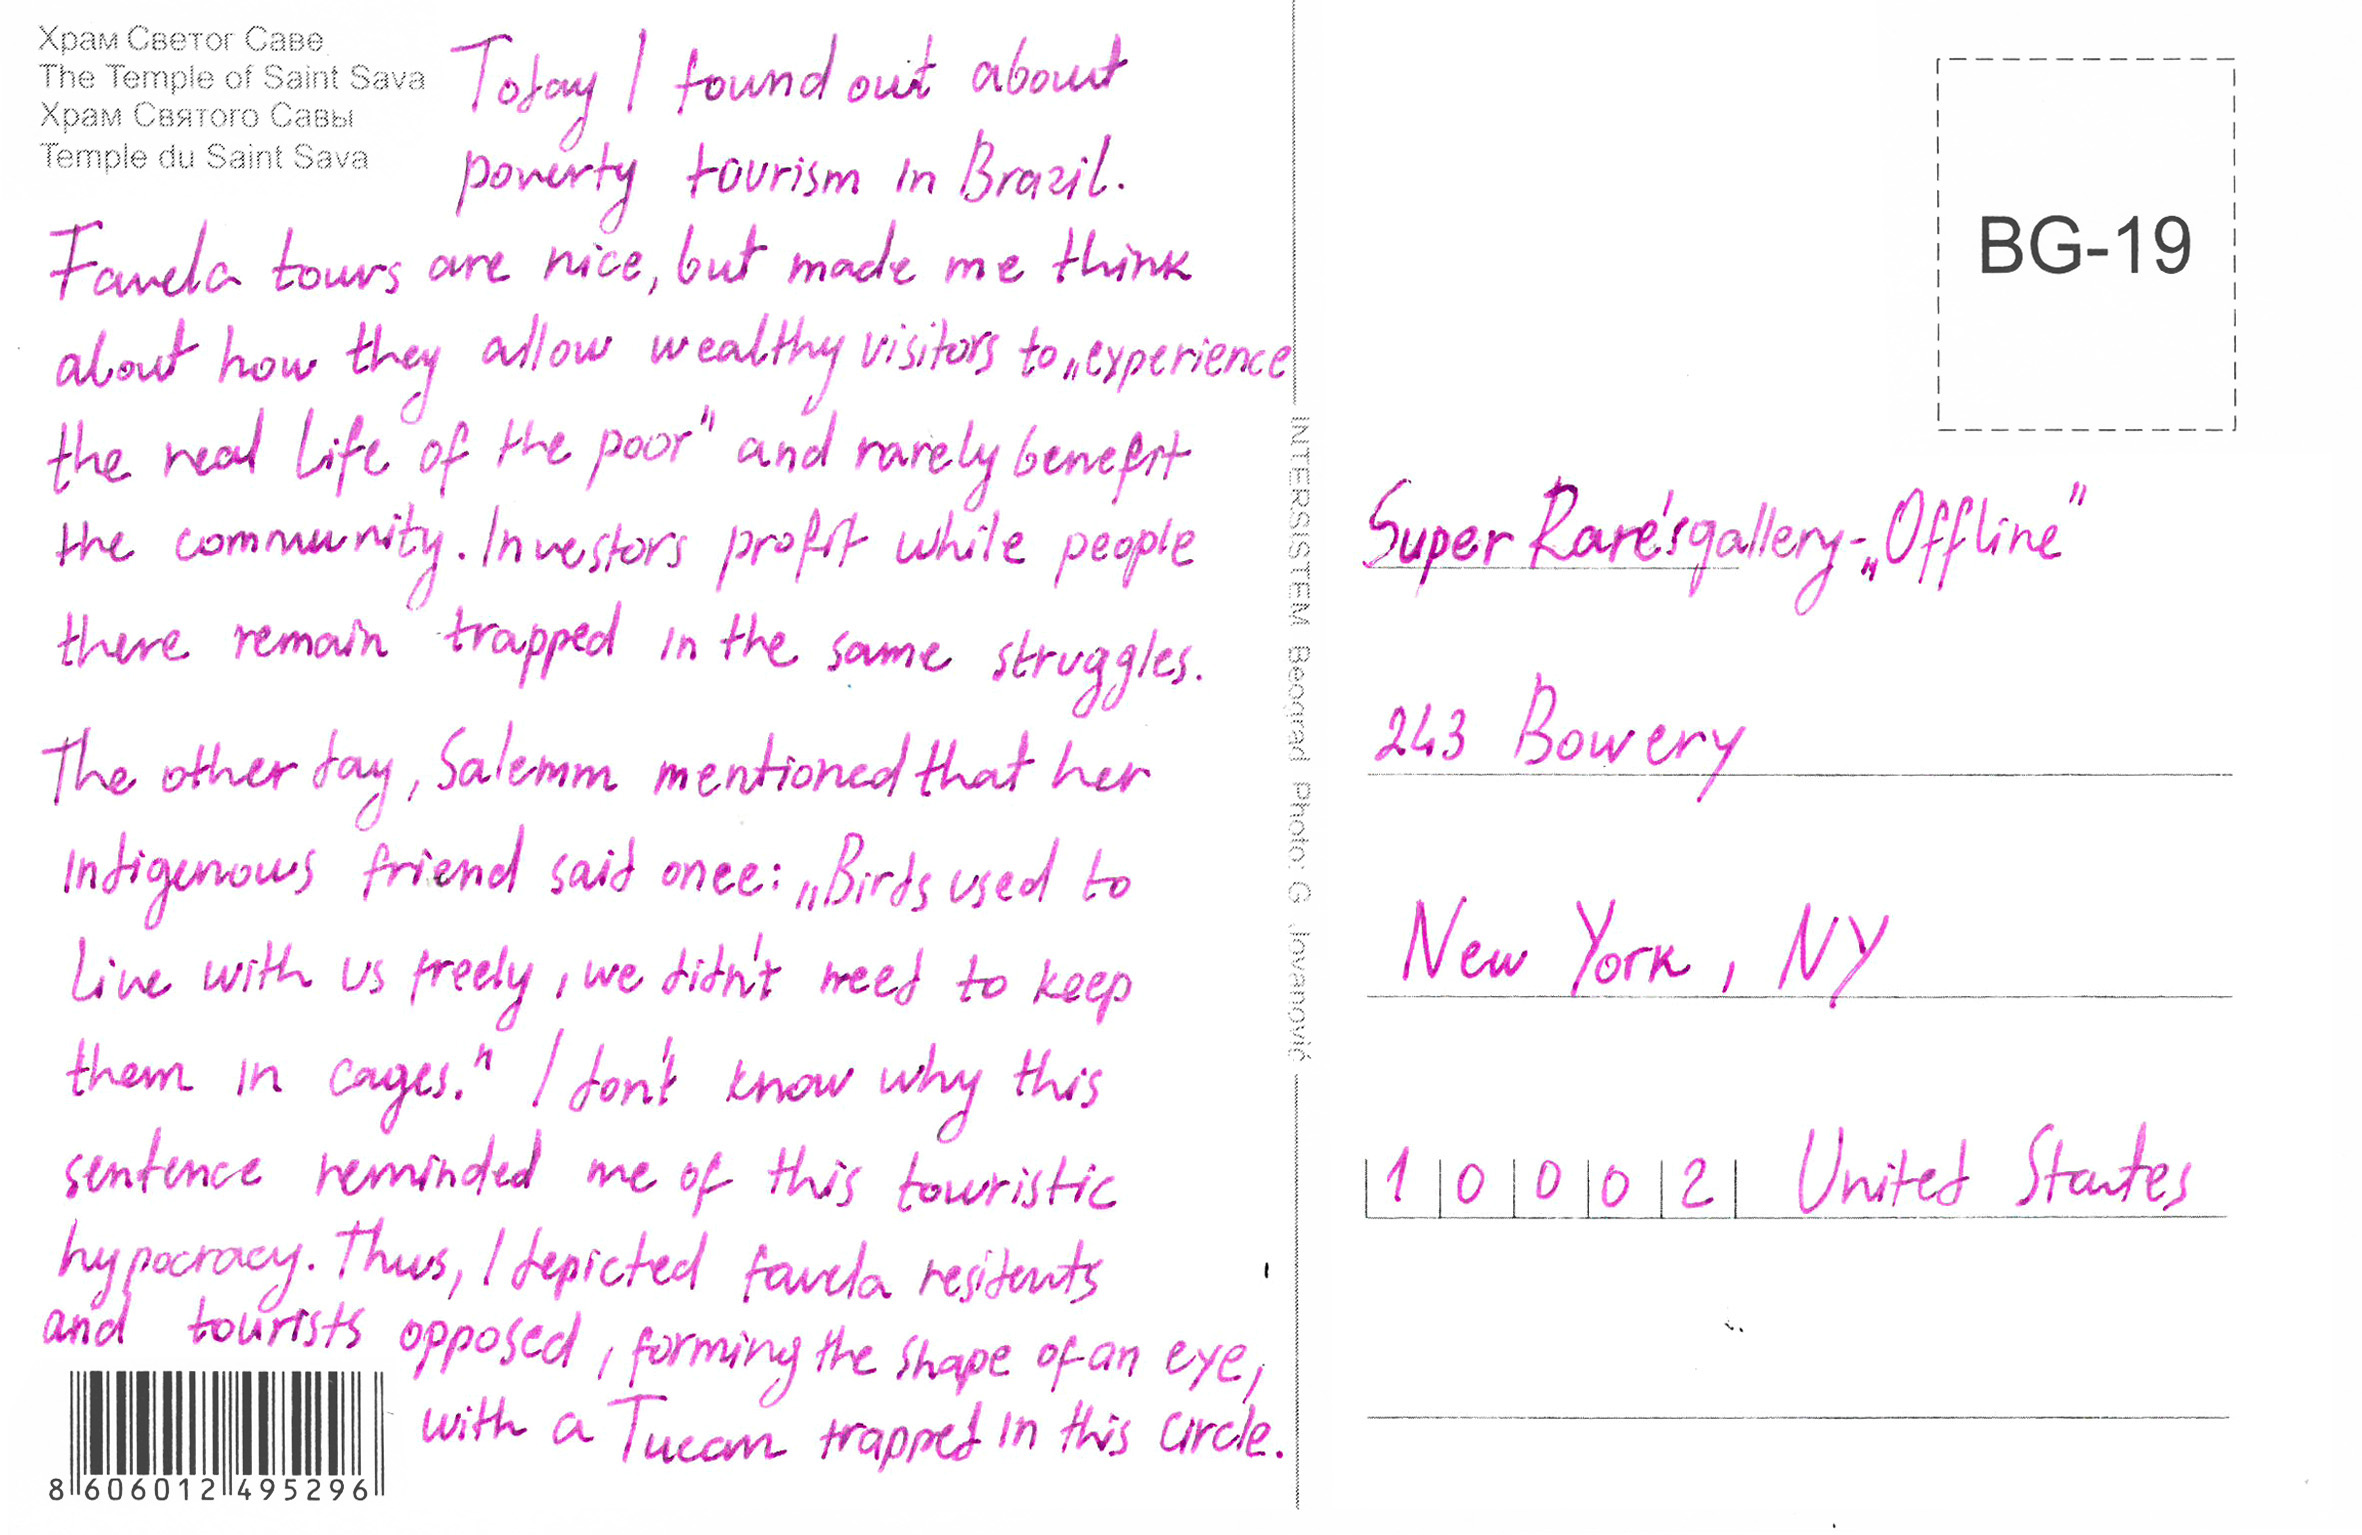 Храм Светог Саве
The Temple of Saint Sava
Храм Святого Савы
Temple du Saint Sava
Today I found out about
poverty tourism in Brazil.
Favela tours are nice, but made me think
about how they allow wealthy visitors to „experience
the real life of the poor" and rarely benefit
the community. Investors profit while people
there remain trapped in the same struggles.
The other day, Salemm mentioned that her
Indigenous friend said once: „Birds used to
live with us freely, we didn't need to keep
them in cages." I don't know why this
sentence reminded me of this touristic
hypocracy. Thus, I depicted favela residents
and tourists opposed, forming the shape of an eye,
with a Tucan trapped in this circle.
8 606012 495296
INTERSISTEM Beograd Photo: G. Jovanović
BG-19
Super Rare's gallery - „Offline"
243 Bowery
New York, NY
10002 United States